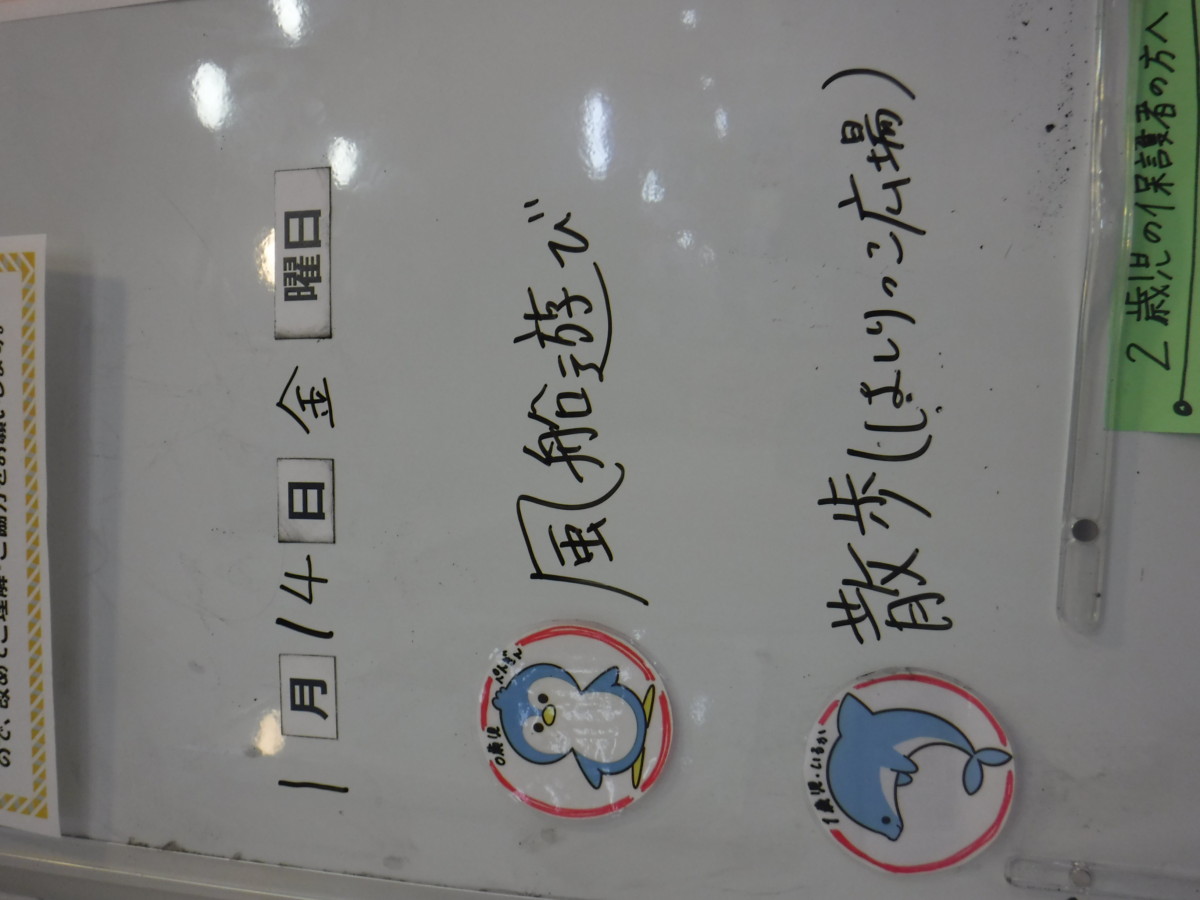 1月14日 金 曜日
0歳児・ぺんぎん
風船遊び
1歳児・いるか
散歩(はしりっこ広場)
2歳児の保護者の方へ